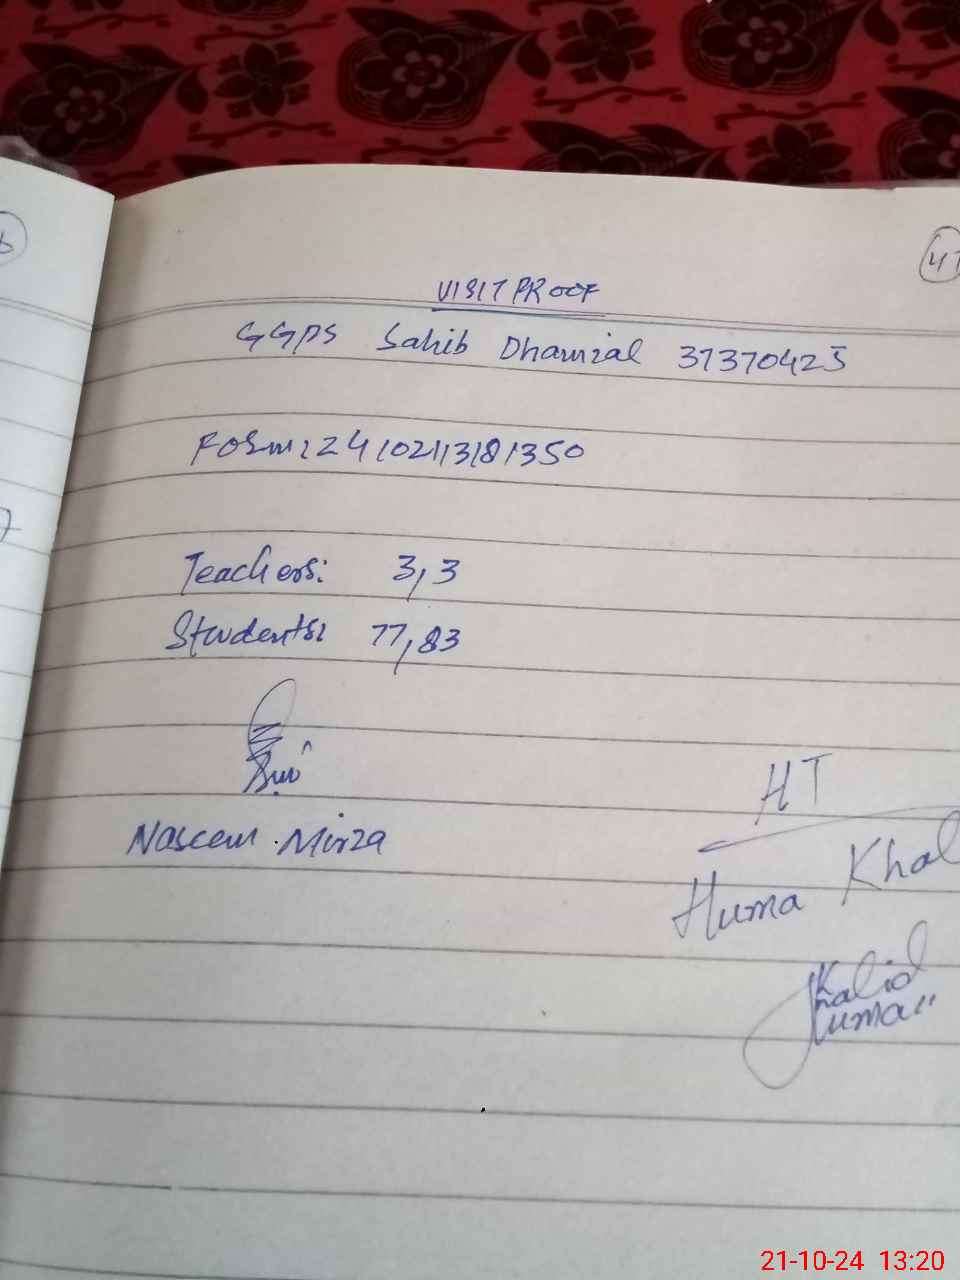 VISIT PROOF
GGPS Sahib Dhamial 37370425
Form: 24102113181350
Teachers: 3,3
Students: 77,83
Naseem Mirza
HT
Huma Khal
Khalid
Huma
21-10-24 13:20